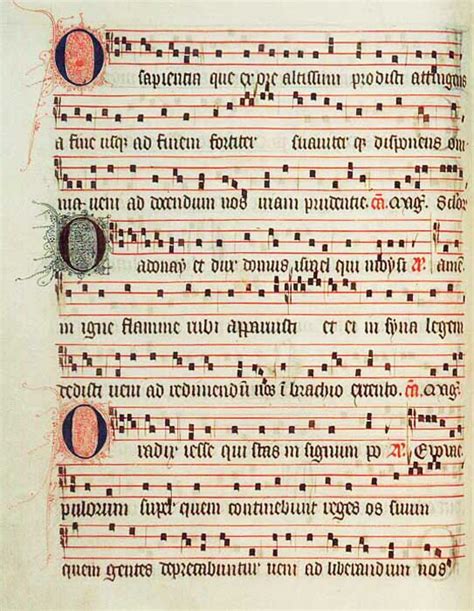 O
sapientia que ex ore altissimi prodisti attingens
a fine usq; ad finem fortiter suauiter q; disponens om
nia ueni ad docendum nos uiam prudentie. Mag.
O
adonay et dux domus israel qui moysi
in igne flamme rubi apparuisti et ei in syna legem
dedisti ueni ad redimendū nos ī brachio extento. Mag.
O
radix iesse qui stas in signum po
pulorum super quem continebunt reges os suum
quem gentes deprecabuntur ueni ad liberandum nos